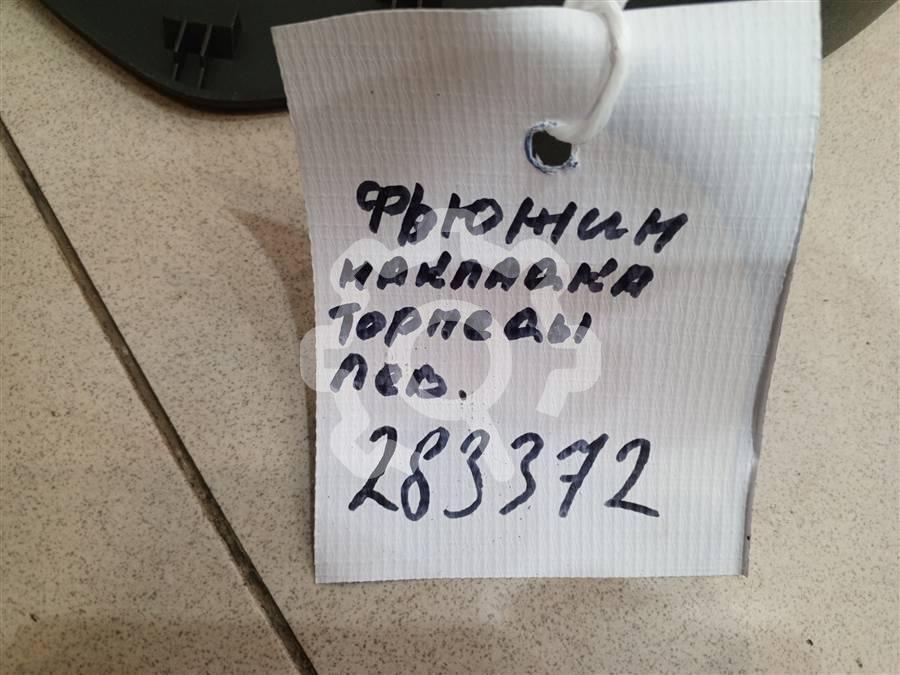 Фрюжин
накладка
торпеды
лев.
283372